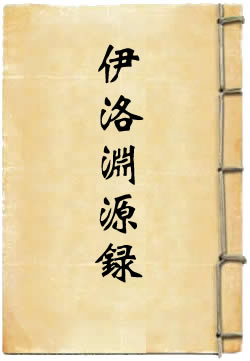 伊洛淵源録